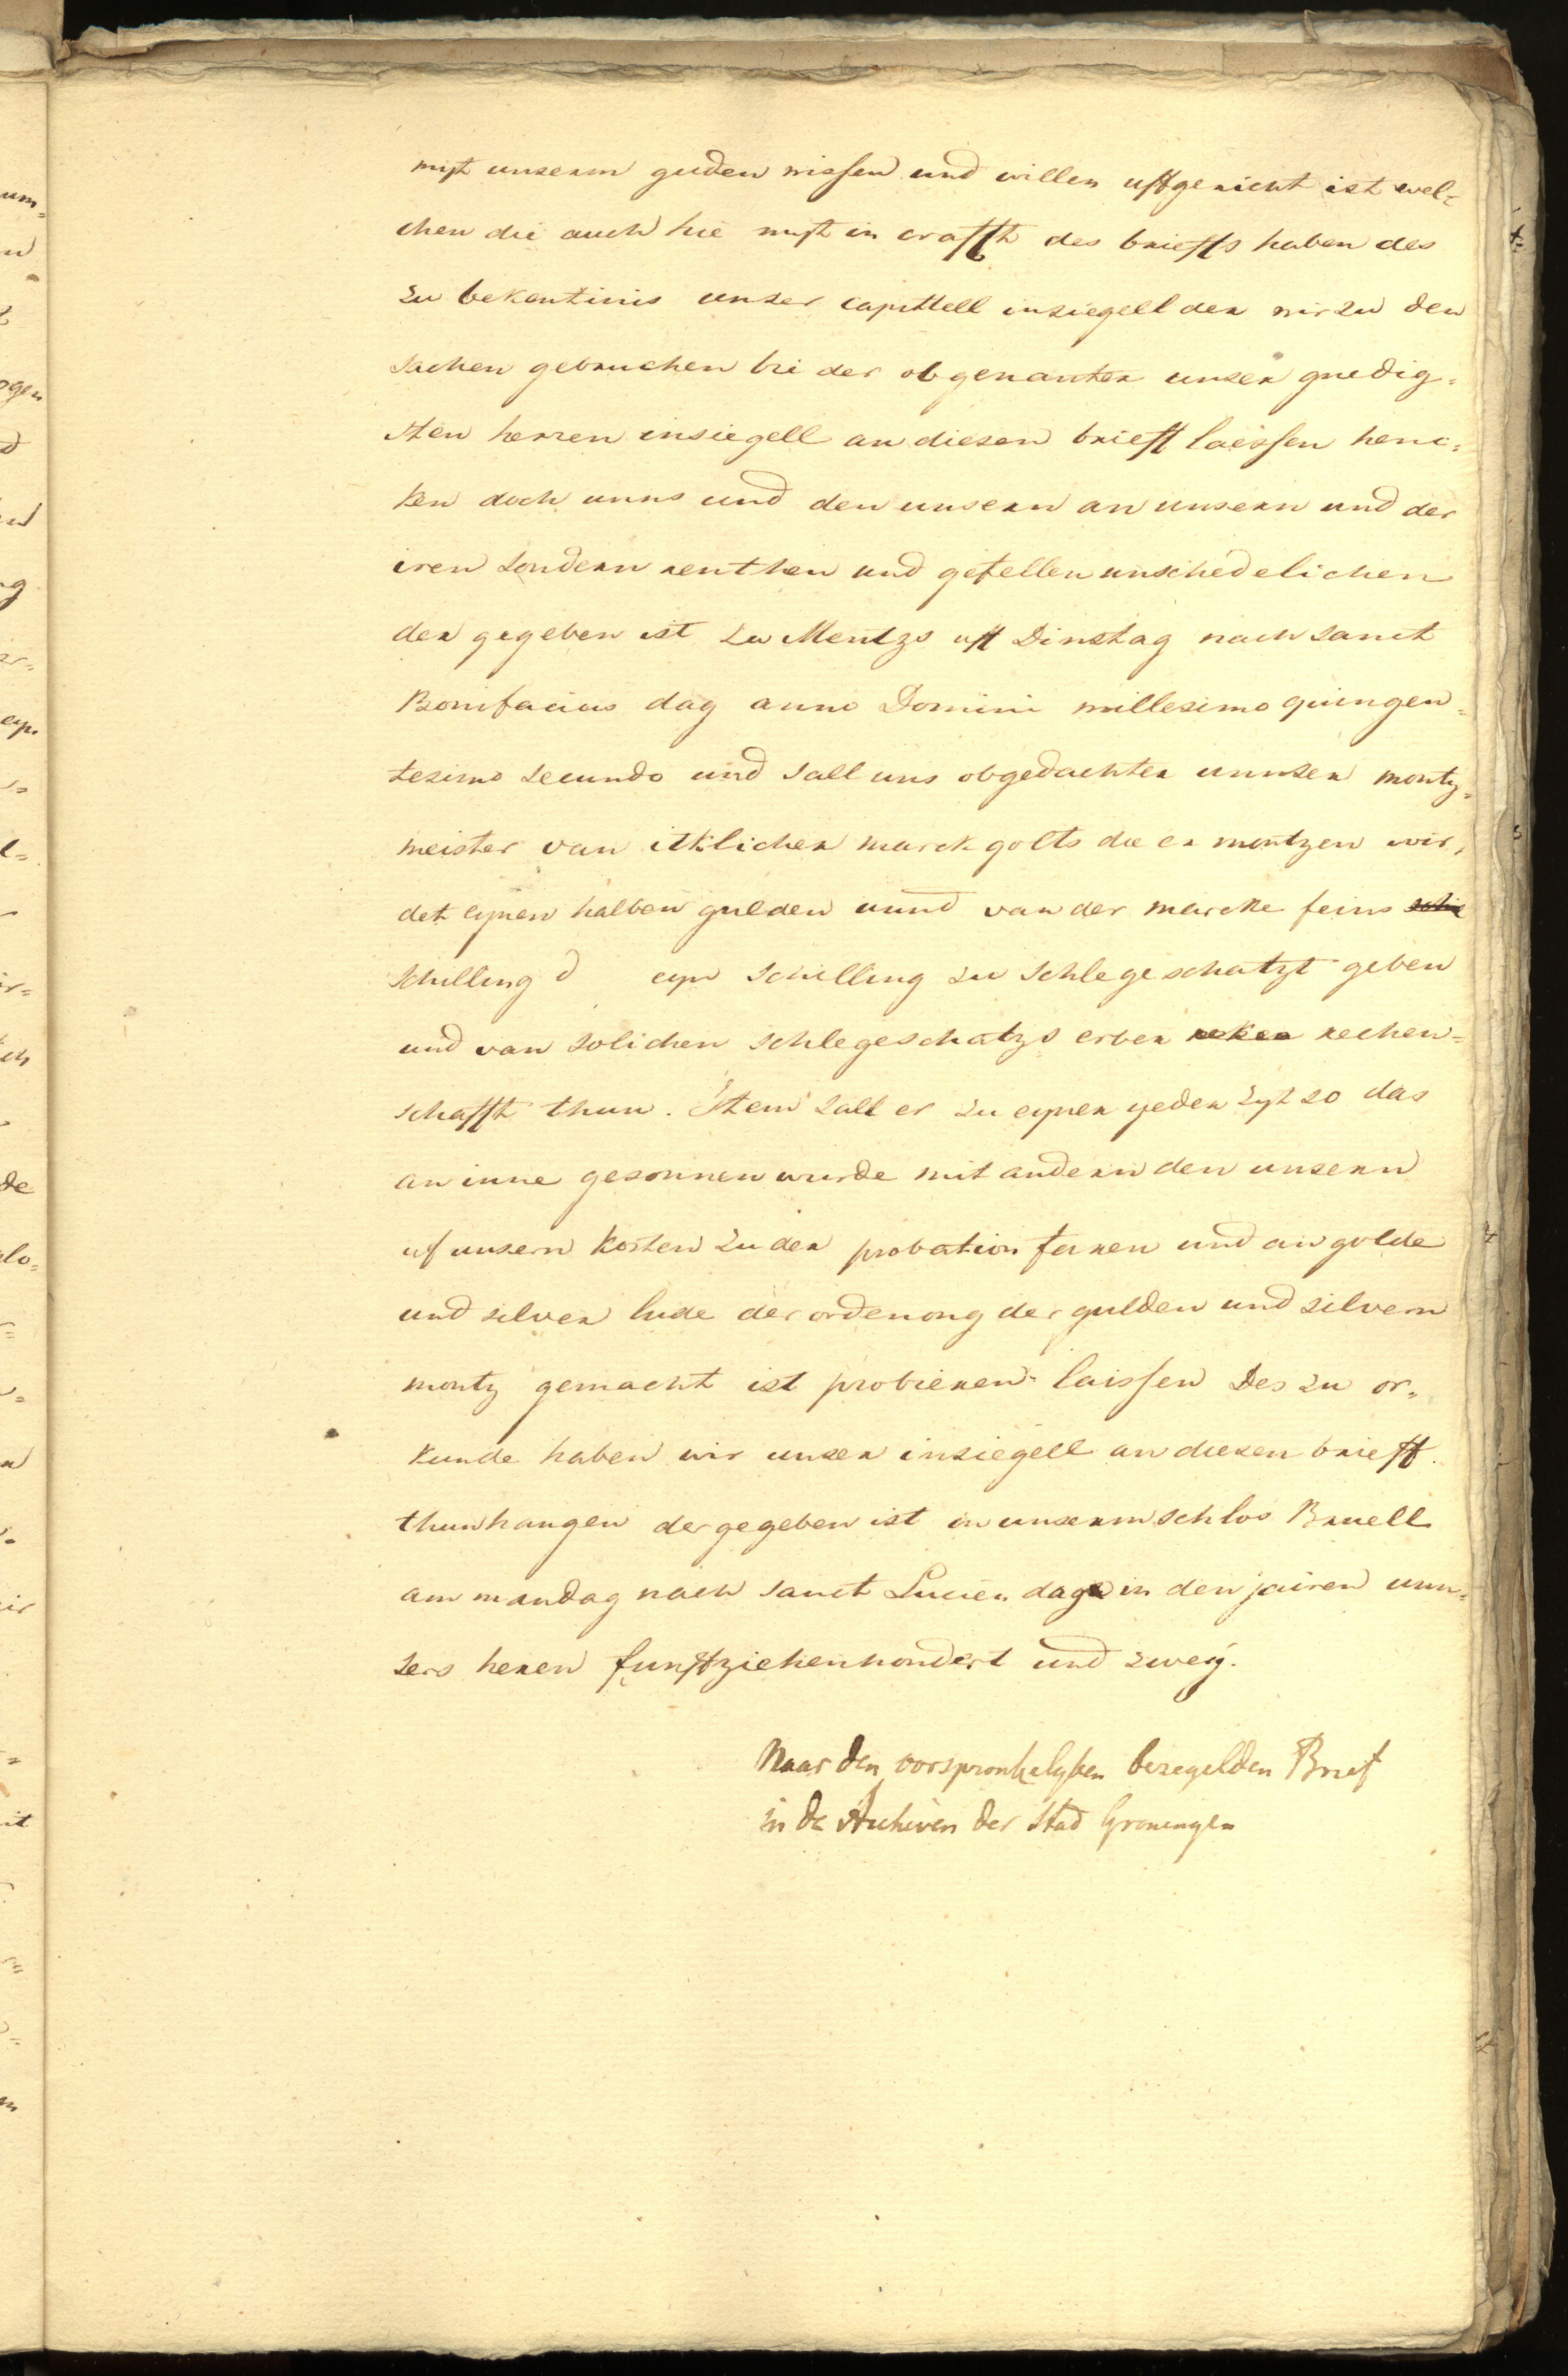 myt unserm guden wissen und willen uffgericht ist wel=
chen die auch hie myt in crafft des brieffs haben des
zu bekentinis unser capittell insiegell der wir zu den
sachen gebruchen bi der obgenanten unser gnedig=
sten herren insiegell an diesen brieff laissen henc=
ken doch unns und den unsern an unsern und der
iren sondern renthen und gefellen unschedelichen
der gegeben ist zu Mentzs uff Dinstag nach sanct
Bonifacius dag anno Domini millesimo quingen=
tesimo secundo und sall uns obgedachter unnser montz=
meister van itklicher marck golts die er montzen wir,
det eynen halben gulden unnd van der marcke feins schi
schilling d eyn schilling zu schlegeschatzt geben
und van solichen schlegeschatzs erber reken rechen=
schafft thun. Item sall er zu eyner yeder zyt so das
an inne gesonnen wurde mit andern den unsern
uf unsern kosten zu der probation faren und an golde
und silver lude der ordenong der gulden und silvern
montz gemacht ist probieren laissen Des zu or=
kunde haben wir unser insiegell an diesen brieff.
thun hangen der gegeben ist in unserm schlos Bruell
am mandag nach sanct Lucien dage in den jairen unn=
sers heren funffziehenhondert und zweij.
Naar den oorspronkelyken bezegelden Brief
in de Archiven der Stad Groningen